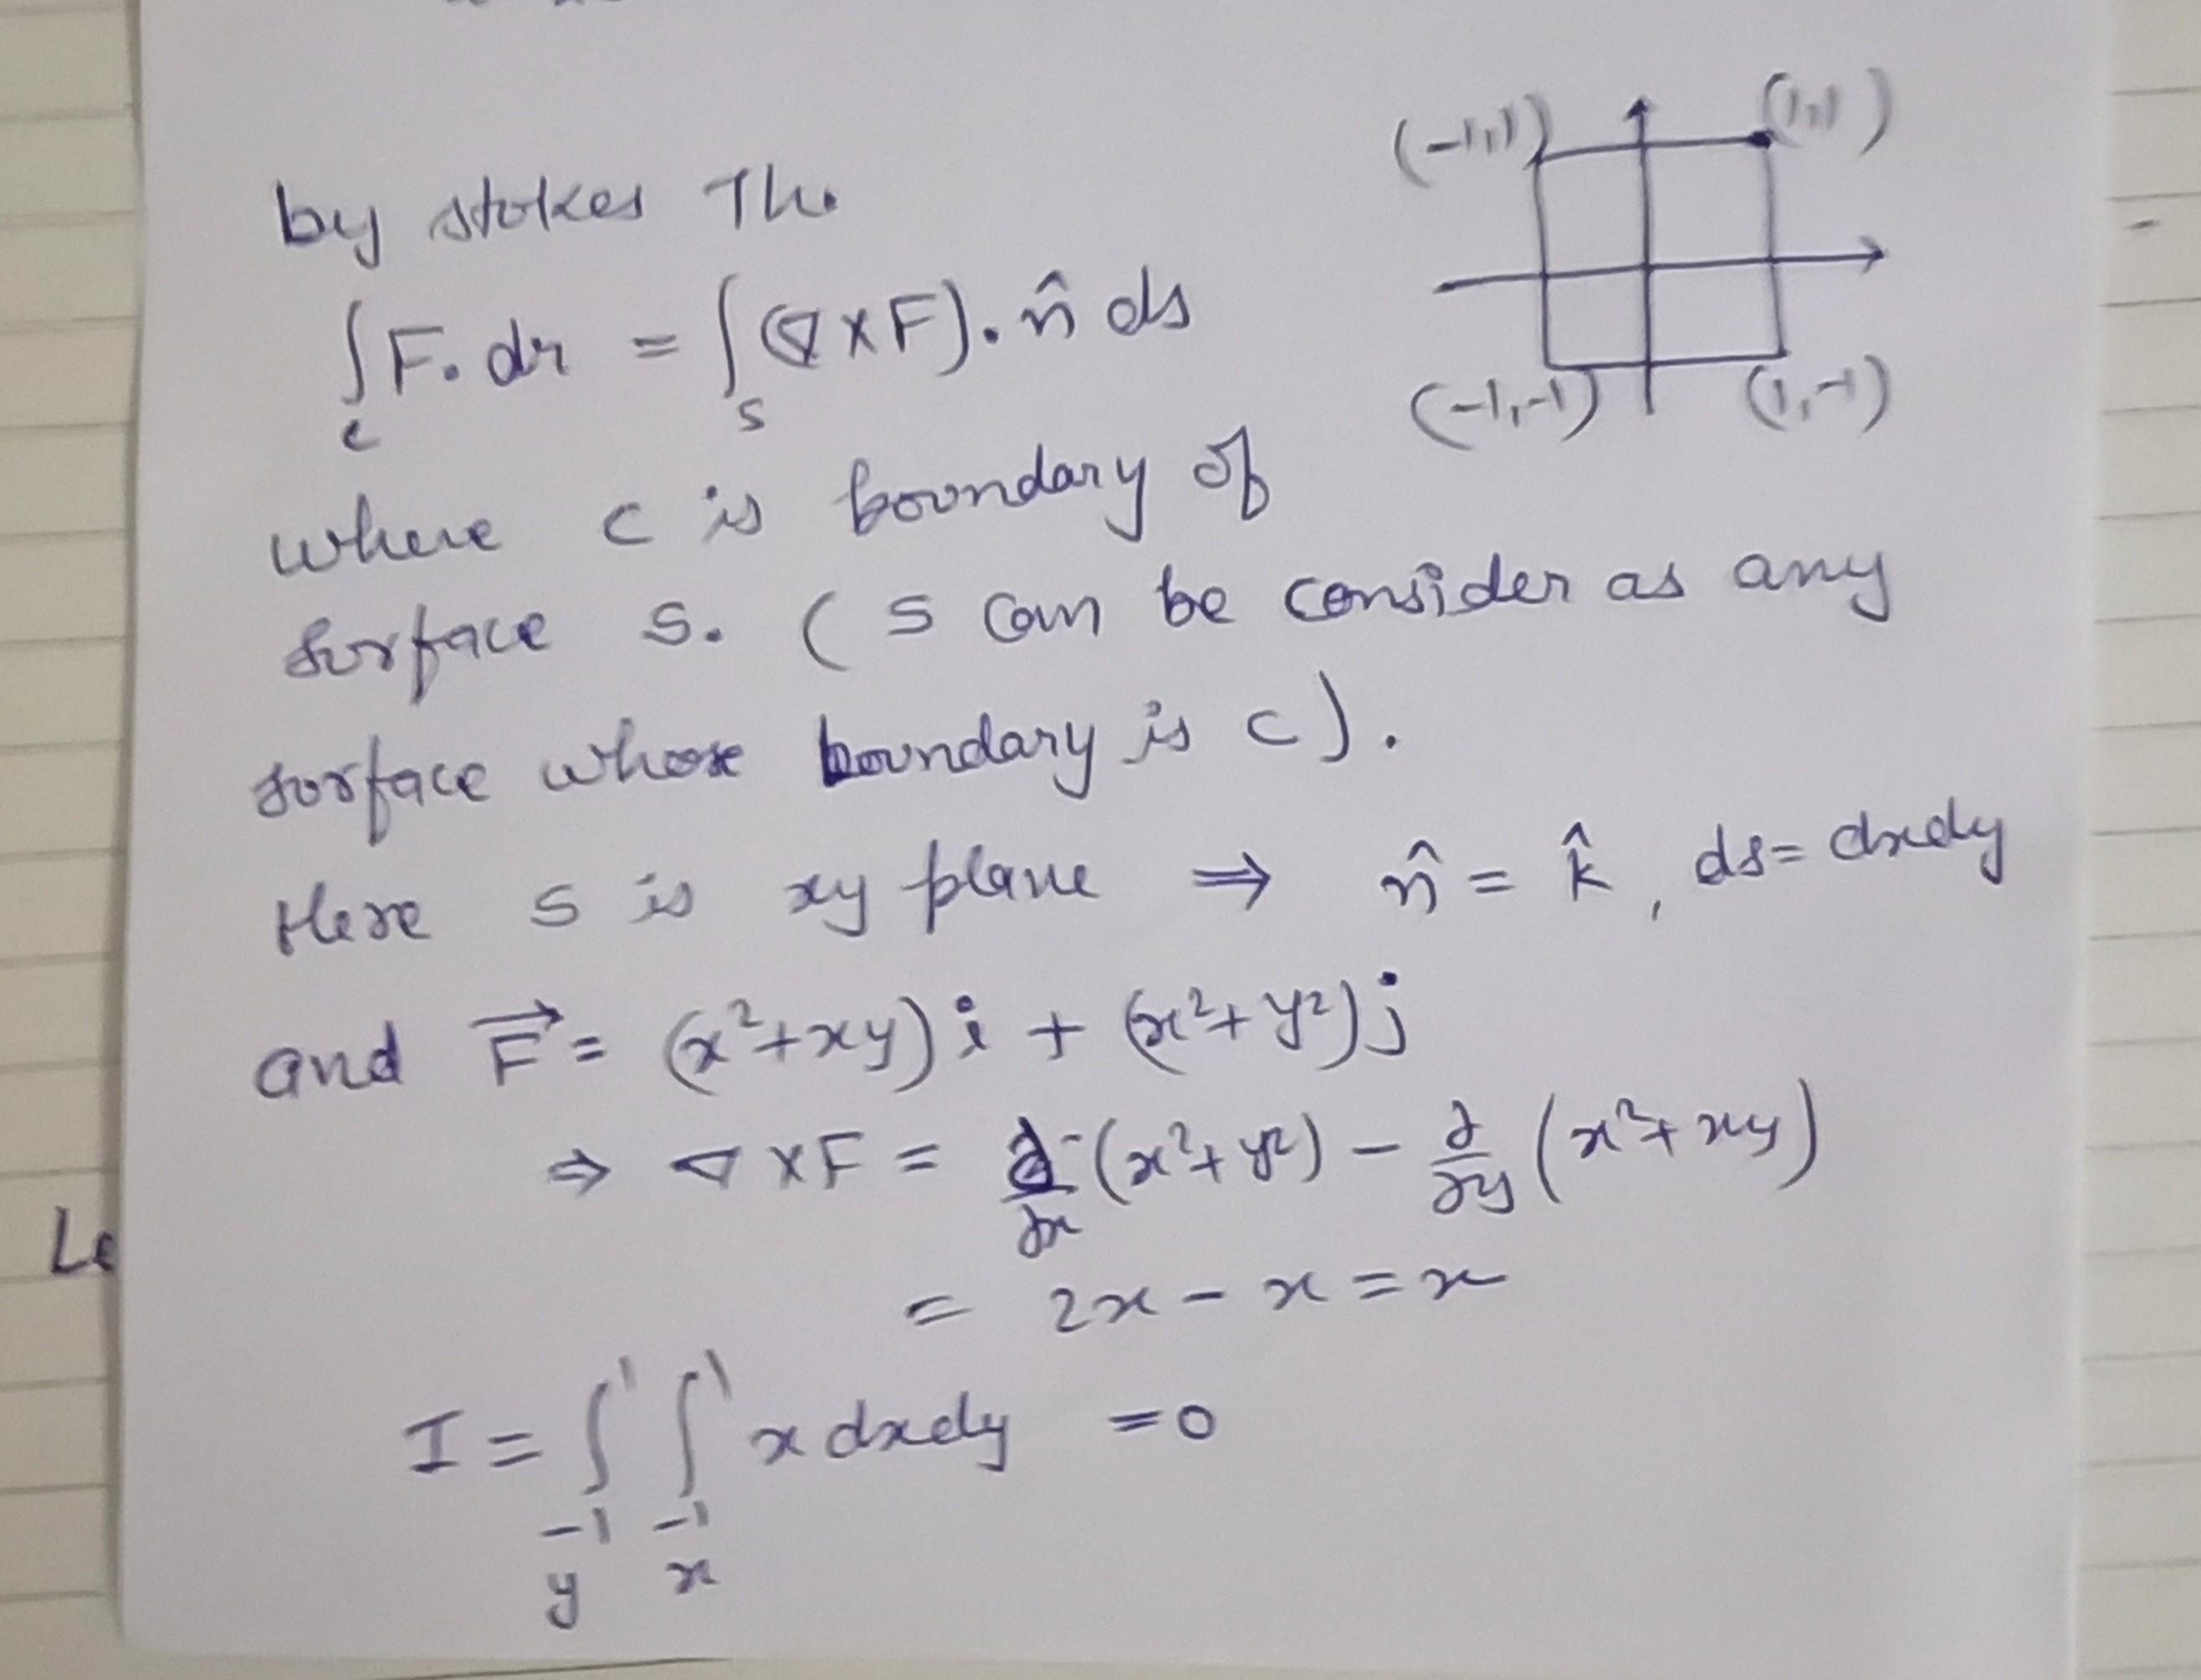 (-1,1) (1,1)
by stokes Th.
∫_c F. dr = ∫_s (∇×F). n̂ ds
(-1,-1) (1,-1)
where c is boundary of
surface s. ( s can be consider as any
surface whose boundary is c).
Here s is xy plane ⇒ n̂ = k̂, ds= dxdy
and F⃗ = (x²+xy) i + (x²+y²) j
⇒ ∇×F = ∂/∂x (x²+y²) − ∂/∂y (x²+xy)
Le
= 2x − x = x
I = ∫_{-1}^{1} ∫_{-1}^{1} x dxdy =0
y x